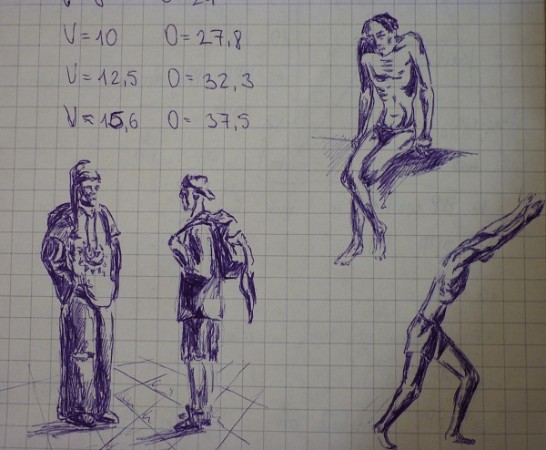 V=10 O=27,8
V=12,5 O=32,3
V=15,6 O=37,5